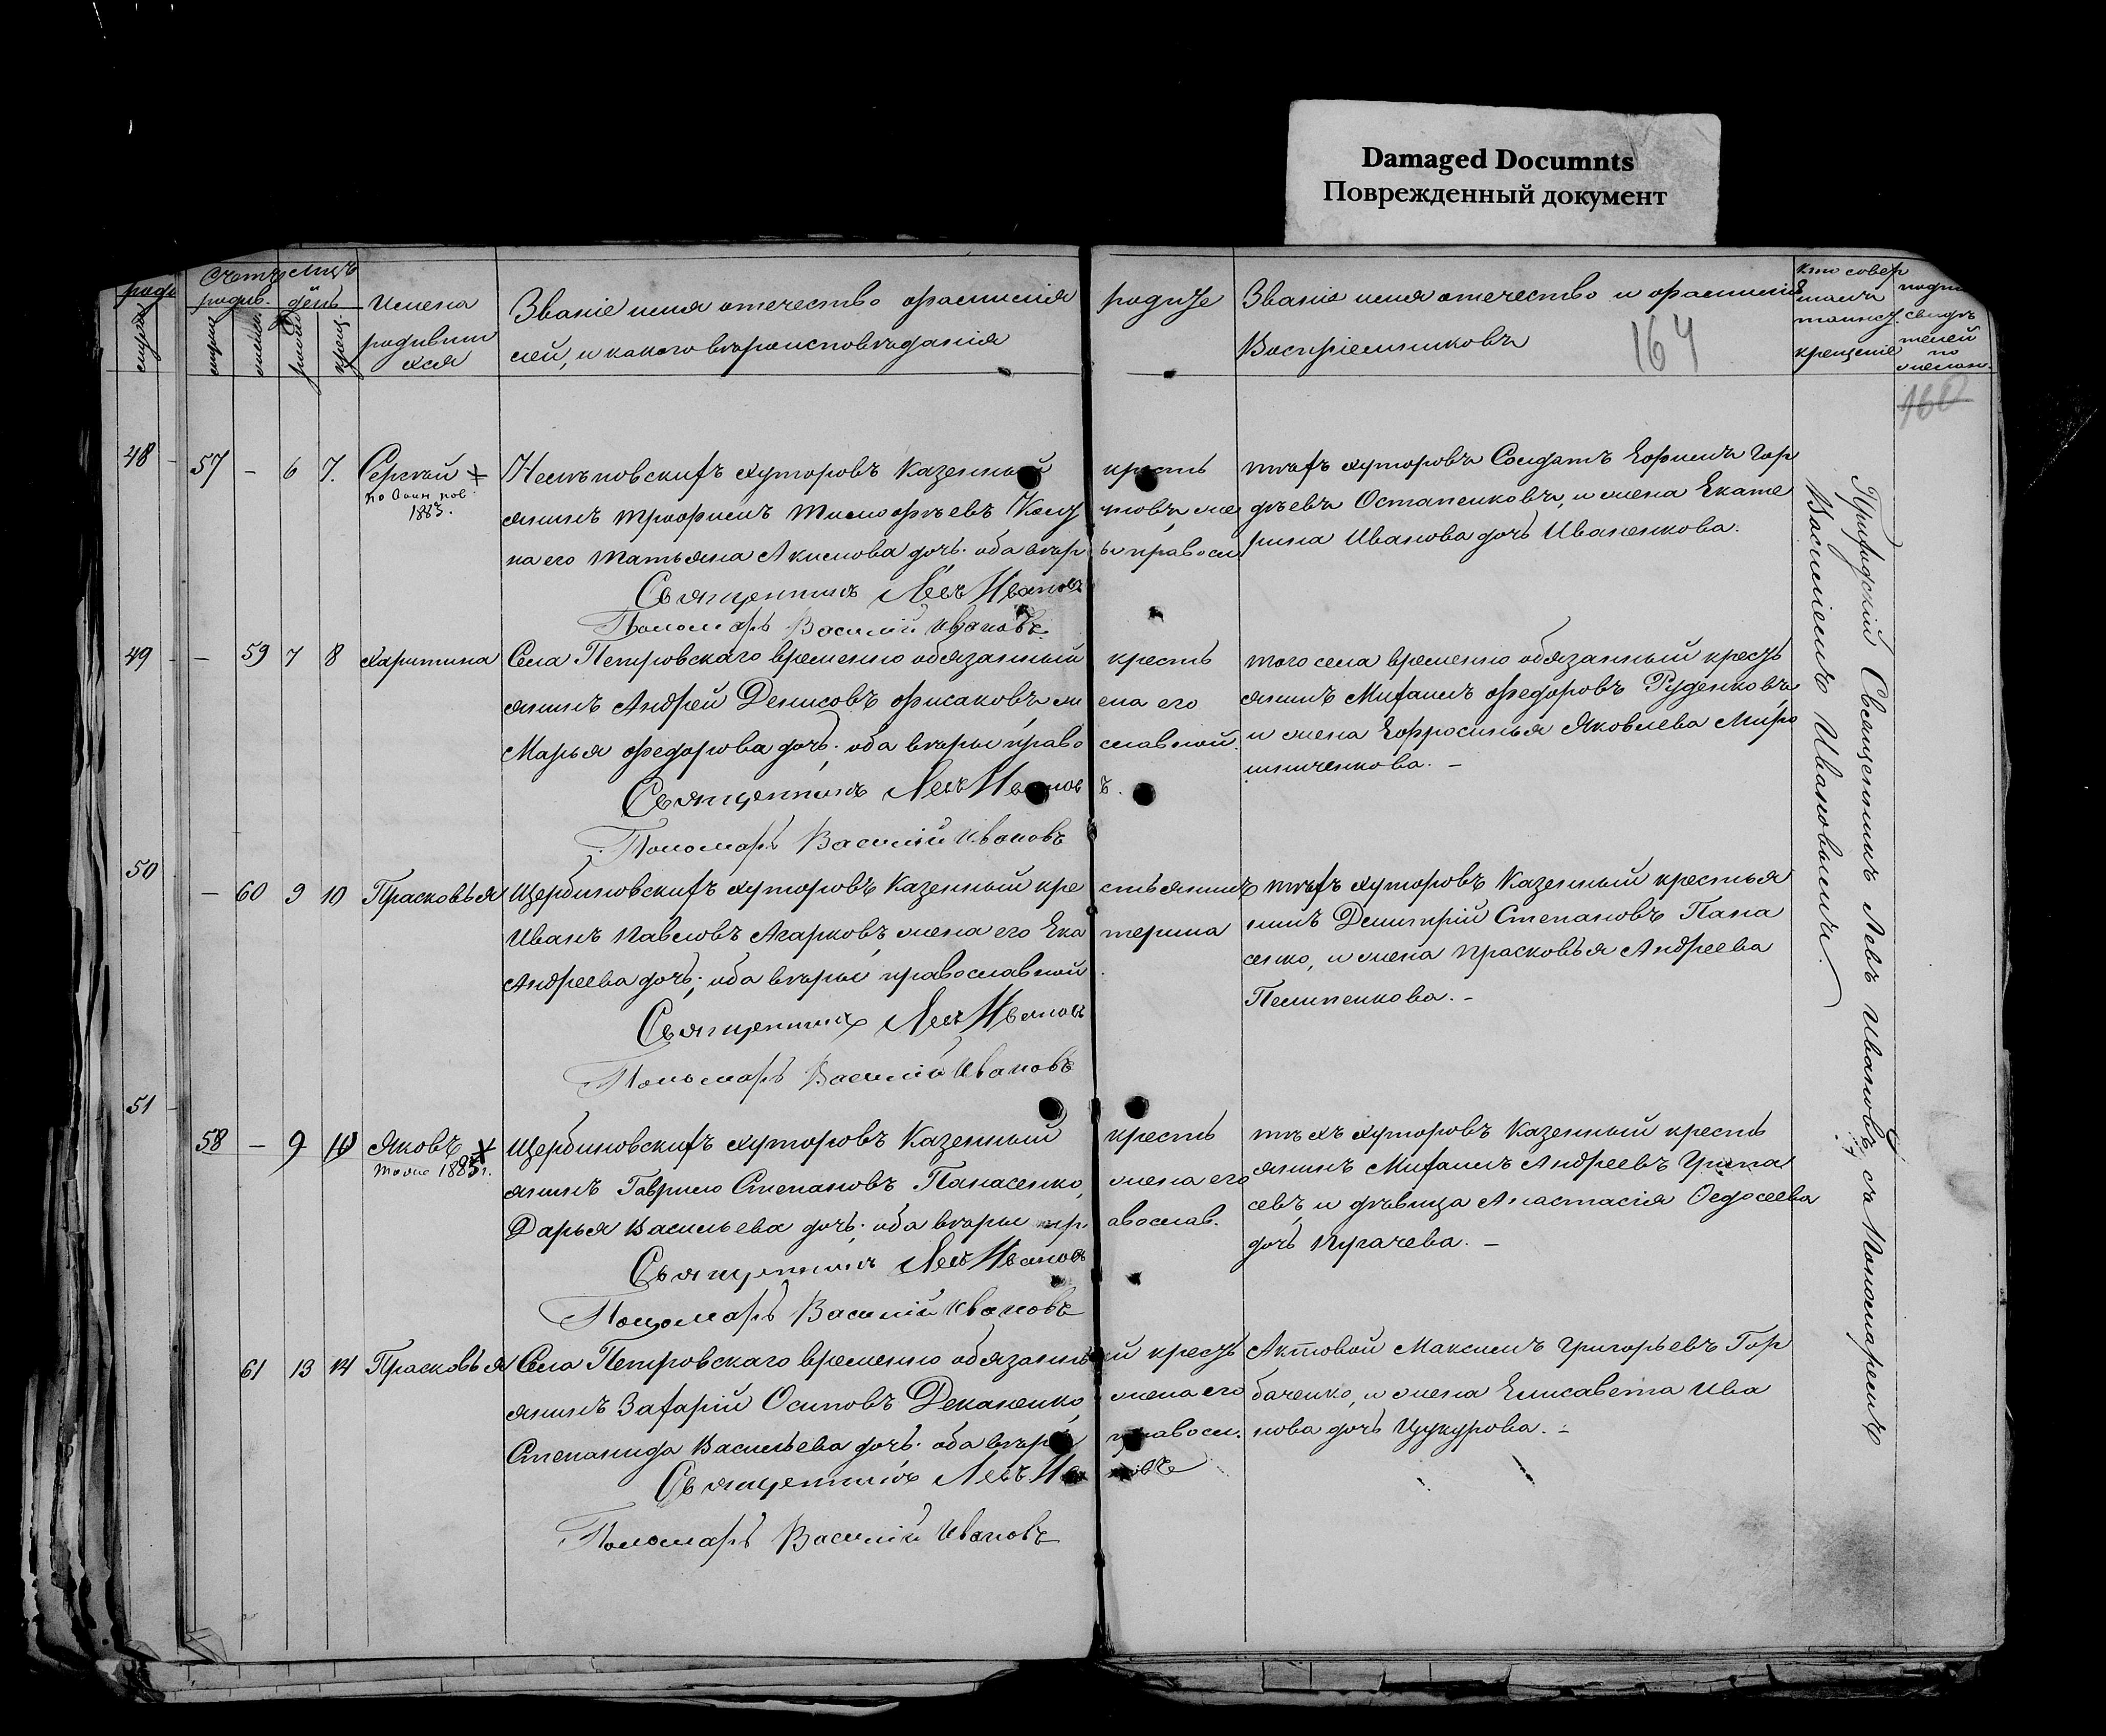 Damaged Documnts
Поврежденный документ
Счетъ родив.
Мцъ день
Имена родившихся
Званіе имя отечество фамилія родите
лей, и какого вѣроисповѣданія
Званіе имя отечество и фамилія
Воспріемниковъ
164
Кто совер
шалъ
таинст.
крещенія
160
48 57 – 6 7. Сергѣй
1885.
хуторовъ Казенный кресть
янинъ Трофимъ Тимофѣевъ
на его Татьяна Акимова дочь. оба вѣры православ
тѣхъ хуторовъ Солдатъ Ефимъ
Остапенковъ, и жена Екате
рина Иванова дочь Иваненкова.
Священникъ Левъ Ивановъ
Пономарь Василій Ивановъ
49 – 59 7 8 Харитина
Села Петровскаго временно обязанный кресть
янинъ Андрей Денисовъ жена его
Марья Федорова дочь; оба вѣры православной.
того села временно обязанный кресть
янинъ Михаилъ Федоровъ Руденковъ
и жена Ефросинья Яковлева Миро
шниченкова. –
Священникъ Левъ Ивановъ.
Пономарь Василій Ивановъ
50 – 60 9 10 Прасковья
Щербиновскихъ хуторовъ Казенный крестьянинъ
Иванъ Павловъ Агарковъ, жена его Екатерина
Андреева дочь; оба вѣры православной.
тѣхъ хуторовъ Казенный крестья
нинъ Димитрій Степановъ Пана
сенко, и жена Прасковья Андреева
Пилипенкова. –
Священникъ Левъ Ивановъ
Пономарь Василій Ивановъ
51 58 – 9 10 Яковъ
тоже 1885 г.
Щербиновскихъ хуторовъ Казенный кресть
янинъ Гаврило Степановъ Панасенко, жена его
Дарья Васильева дочь; оба вѣры православ.
тѣхъ хуторовъ Казенный кресть
янинъ Михаилъ Андреевъ
севъ, и дѣвица Анастасія Федосеева
дочь Пугачева. –
Священникъ Левъ Ивановъ
Пономарь Василій Ивановъ
61 13 14 Прасковья
Села Петровскаго временно обязанный кресть
янинъ Захарій Осиповъ Деканенко, жена его
Степанида Васильева дочь. оба вѣры православ.
Максимъ Григорьевъ Гор
баченко, и жена Елисавета Ива
нова дочь Цукурова. –
Священникъ Левъ Ивановъ
Пономарь Василій Ивановъ
Приходскій Священникъ Левъ Ивановъ, съ Пономаремъ
Василіемъ Ивановымъ.